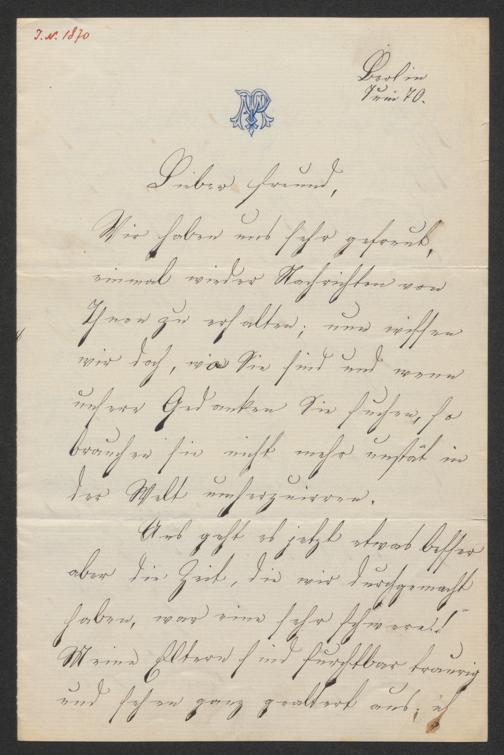 I. N. 1870
Berlin
Juni 70.
Lieber Freund,
Wir haben uns sehr gefreut,
einmal wieder Nachrichten von
Ihnen zu erhalten; nun wissen
wir doch, wo Sie sind und wenn
unsere Gedanken Sie suchen, so
brauchen sie nicht mehr unstät in
der Welt umherzuirren.
Uns geht es jetzt etwas besser
aber die Zeit, die wir durchgemacht
haben, war eine sehr schwere!
Meine Eltern sind furchtbar traurig
und sehen ganz gealtert aus; ich